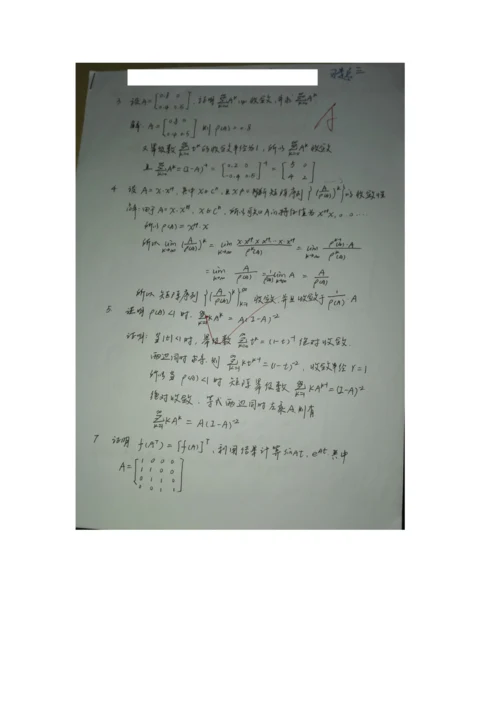 习题三
3. 设A=[0.8 0; -0.4 0.5], 证明 ∑A^k 收敛, 并求 ∑A^k
解: A=[0.8 0; -0.4 0.5] 则 ρ(A)=0.8
又幂级数 ∑t^k 的收敛半径为1, 所以 ∑A^k 收敛
且 ∑A^k=(I-A)^-1 = [0.2 0; 0.4 0.5]^-1 = [5 0; 4 2]
4. 设 A=X·X^H, 其中 X∈C^n, 判断矩阵序列{(A/ρ(A))^k}的收敛性
解: 由于 A=X·X^H, X∈C^n, 所以可知A的特征值为 X^HX, 0, 0 …
所以 ρ(A)=X^H·X
所以 lim(A/ρ(A))^k = lim X·X^H X·X^H…X·X^H/ρ^k(A) = lim ρ^(k-1)(A)·A/ρ^k(A)
= lim A/ρ(A) = 1/ρ(A) lim A = A/ρ(A)
所以 矩阵序列{(A/ρ(A))^k} 收敛, 并且收敛于 1/ρ(A) A
5. 证明 ρ(A)<1时, ∑kA^k = A(I-A)^-2
证明: 当|t|<1时, 幂级数 ∑t^k=(1-t)^-1 绝对收敛.
两边同时求导, 则 ∑kt^(k-1)=(1-t)^-2, 收敛半径 r=1
所以当 ρ(A)<1时 矩阵幂级数 ∑kA^(k-1)=(I-A)^-2
绝对收敛. 等式两边同时左乘A则有
∑kA^k = A(I-A)^-2
7 证明 f(A^T)=[f(A)]^T, 利用结果计算 sinAt, e^At 其中
A=[1 0 0 0; 1 1 0 0; 0 1 1 0; 0 0 1 1]